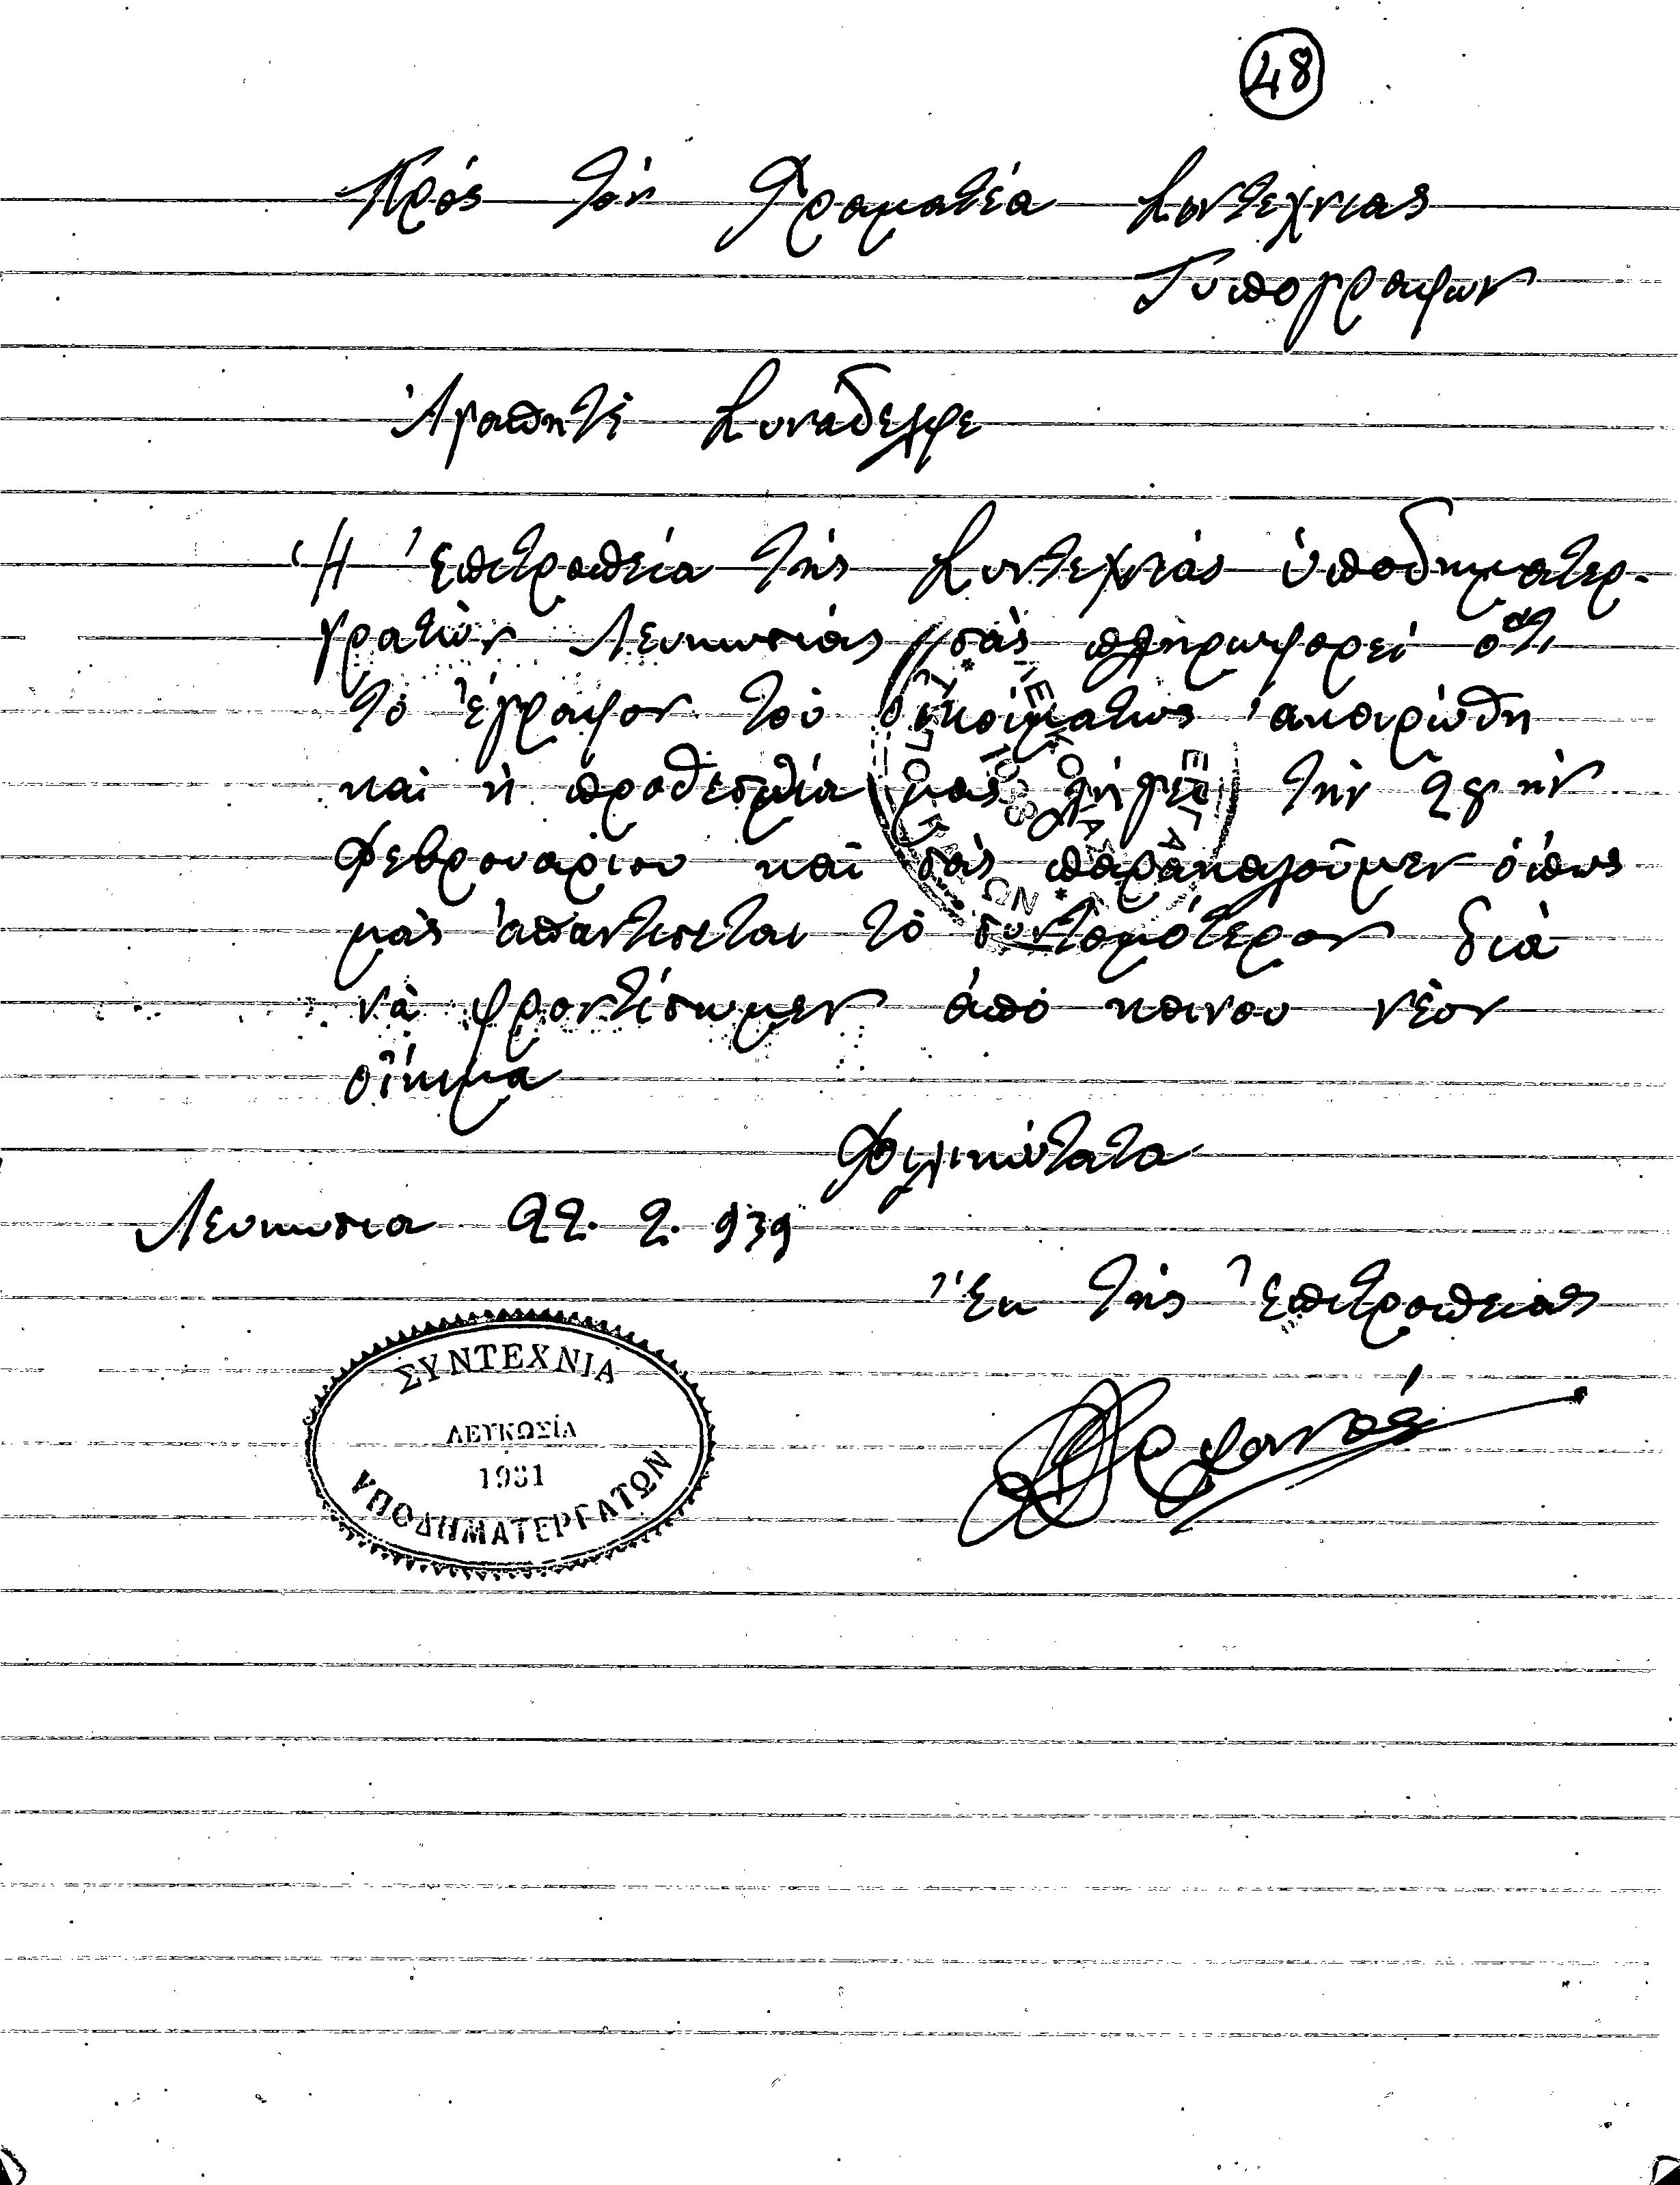 48
Πρός τόν Γραματέα Συντεχνιας
Τυπογραφων
Ἀγαπητέ Συνάδελφε
Ἡ Ἐπιτροπεία τής Συντεχνιάς ὑποδηματερ-
γρατών Λευκωσιάς σάς πληρωφορεί ὅτι
τό ἔγραφον τού οἰκοίματως ἀκοιρώθη
καί ἡ προθεσμία μας λήγει τήν 28 ην
Φεβρουαρίου καί σάς παρακαλούμεν ὅπως
μάς ἀπαντισεται τό συντομότερον διά
νά φροντίσωμεν ἀπό κοινου νέον
οἴκημα
Φιλικώτατα
Λευκωσια 22. 2. 939
Ἐκ τής Ἐπιτροπειας
ΣΥΝΤΕΧΝΙΑ
ΛΕΥΚΩΣΊΑ
1931
ΥΠΟΔΗΜΑΤΕΡΓΑΤΩΝ